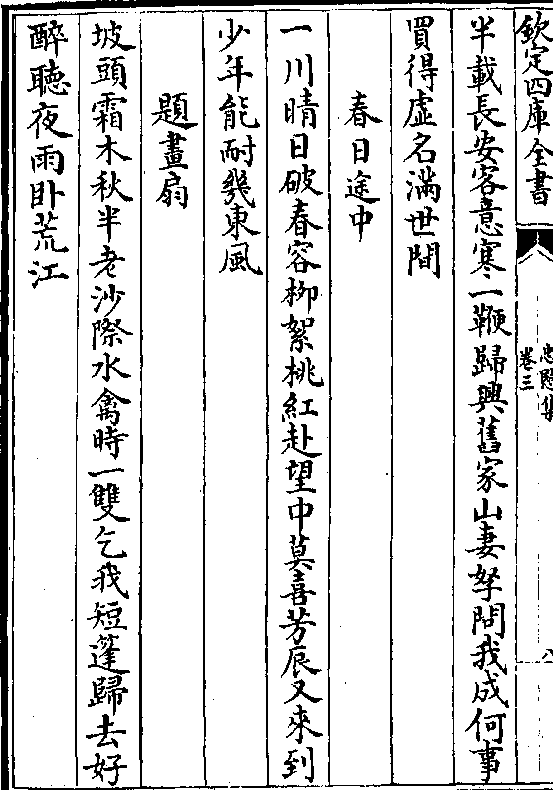 欽定四庫全書
卷三
半載長安客意寒一鞭歸興舊家山妻孥問我成何事
買得虛名滿世間
春日途中
一川晴日破春容柳絮桃紅赴望中莫喜芳辰又來到
少年能耐幾東風
題畫扇
坡頭霜木秋半老沙際水禽時一雙乞我短蓬歸去好
醉聽夜雨卧荒江